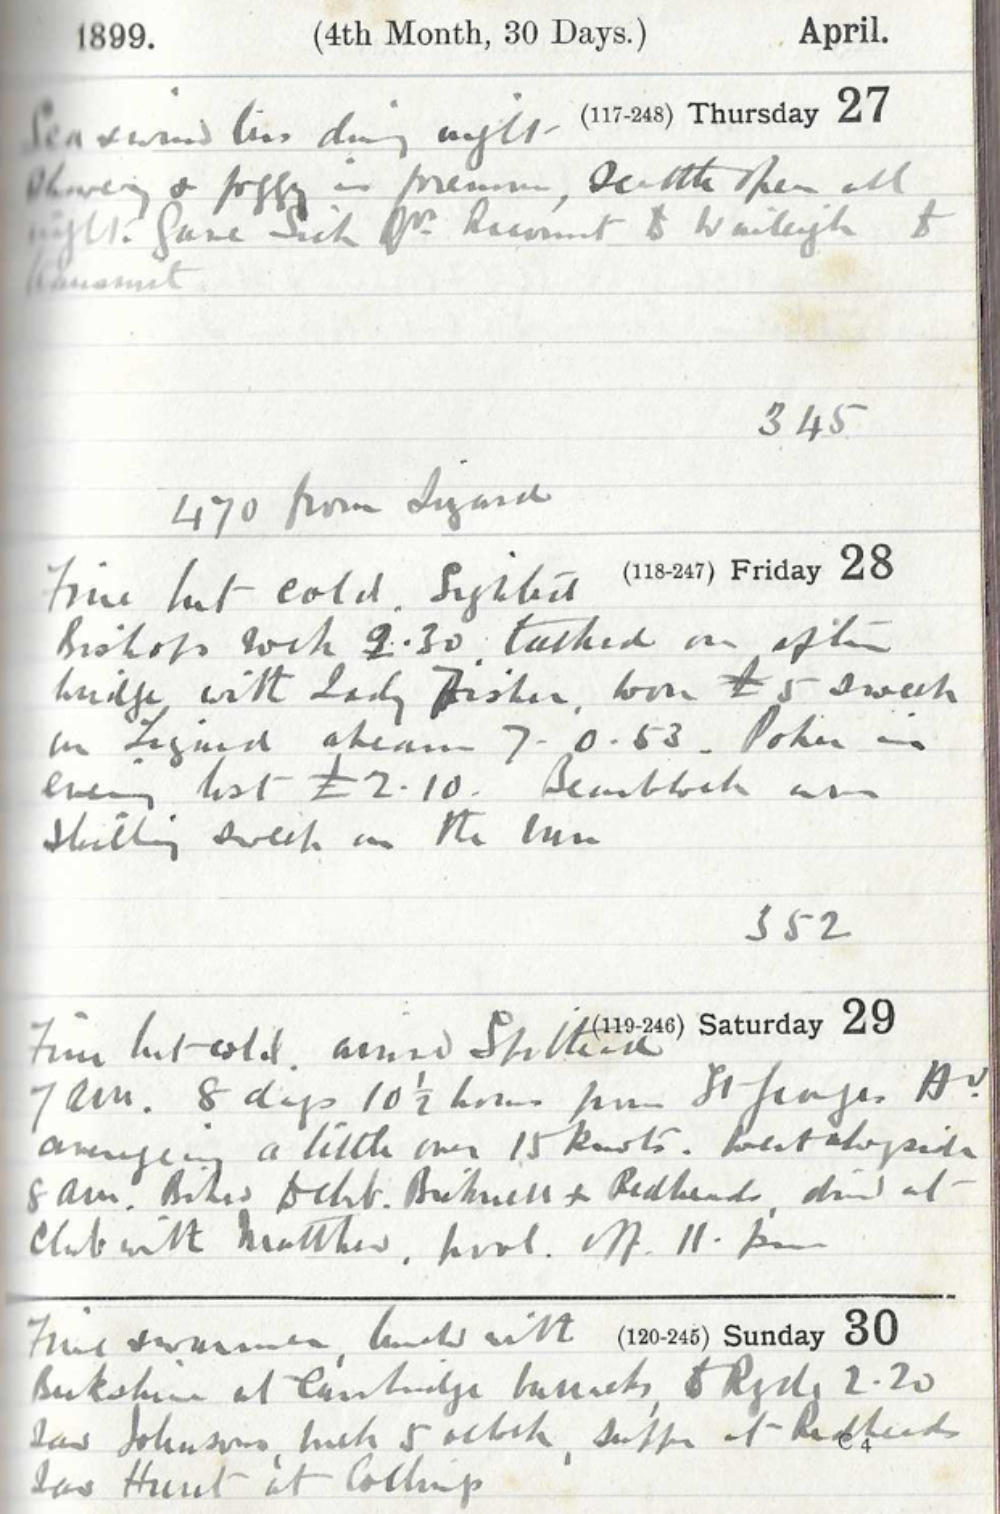 1899. (4th Month, 30 Days.) April.
(117-248) Thursday 27
Sea & wind less during night
Showery & foggy in forenoon, scuttle open all
night. Gave Sick Qrs. Account to Waileigh to
transmit
345
470 from Lizard
(118-247) Friday 28
Fine but cold. Sighted
Bishops rock 9.30. talked on after
bridge with Lady Fisher, won £5 sweep
on Lizard abeam 7-0.53. Poker in
evening lost £2.10. won
shilling sweep on the run
352
(119-246) Saturday 29
Fine but cold. arrived Spithead
7 am. 8 days 10½ hours from St Georges Bd.
averageing a little over 15 knots. Went alongside
8 am. Biked to Club. Bicknell & Redheads, dined at
Club with Matthew, pool. off. 11. pm
(120-245) Sunday 30
Fine & warmer, lunched with
Berkshire at Cambridge barracks, to Ryde 2.20
Saw Johnsons, back 5 oclock, supper at Redheads
Saw Hunt at Collings
C 4